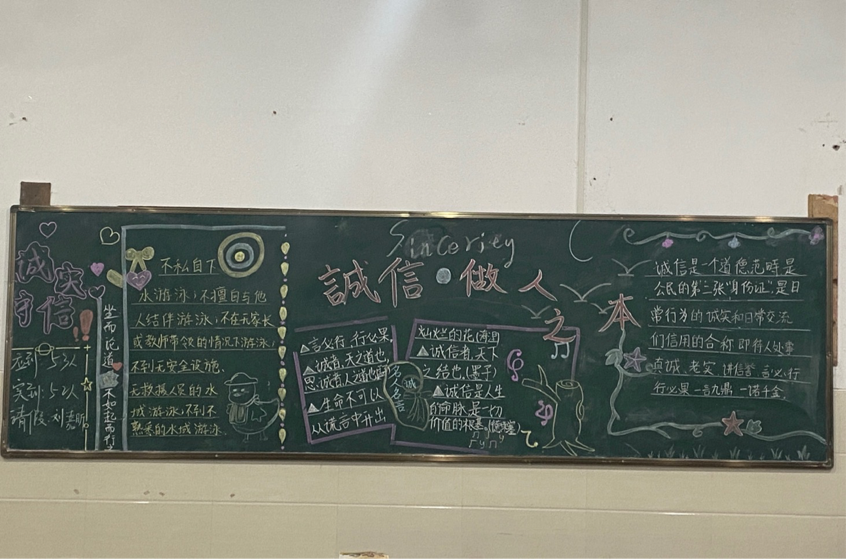 诚实
守信
应到:53人
实到:52人
请假
坐而论道 不如起而行
不私自下
水游泳;不擅自与他
人结伴游泳;不在无家长
或教师带领的情况下游泳;
不到无安全设施、
无救援人员的水
域游泳;不到不
熟悉的水域游泳
Sincerity
誠信·做人之本
▲言必行,行必果
▲诚者,天之道也
思诚者,人之道也
▲生命不可以
从谎言中开出
名人名言
诚
灿烂的花
▲诚信者,天下
之结也
▲诚信是人生
的命脉,是一切
价值的根基
诚信是一个道德范畴是
公民的第二张"身份证"是日
常行为的诚实和日常交流
们信用的合称 即待人处事
真诚、老实、讲信誉 言必行
行必果 一言九鼎 一诺千金